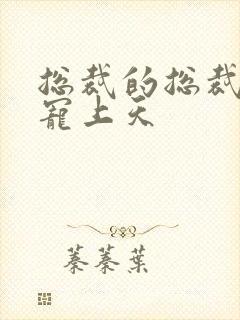 总裁的总裁
宠上天
蓁蓁葉